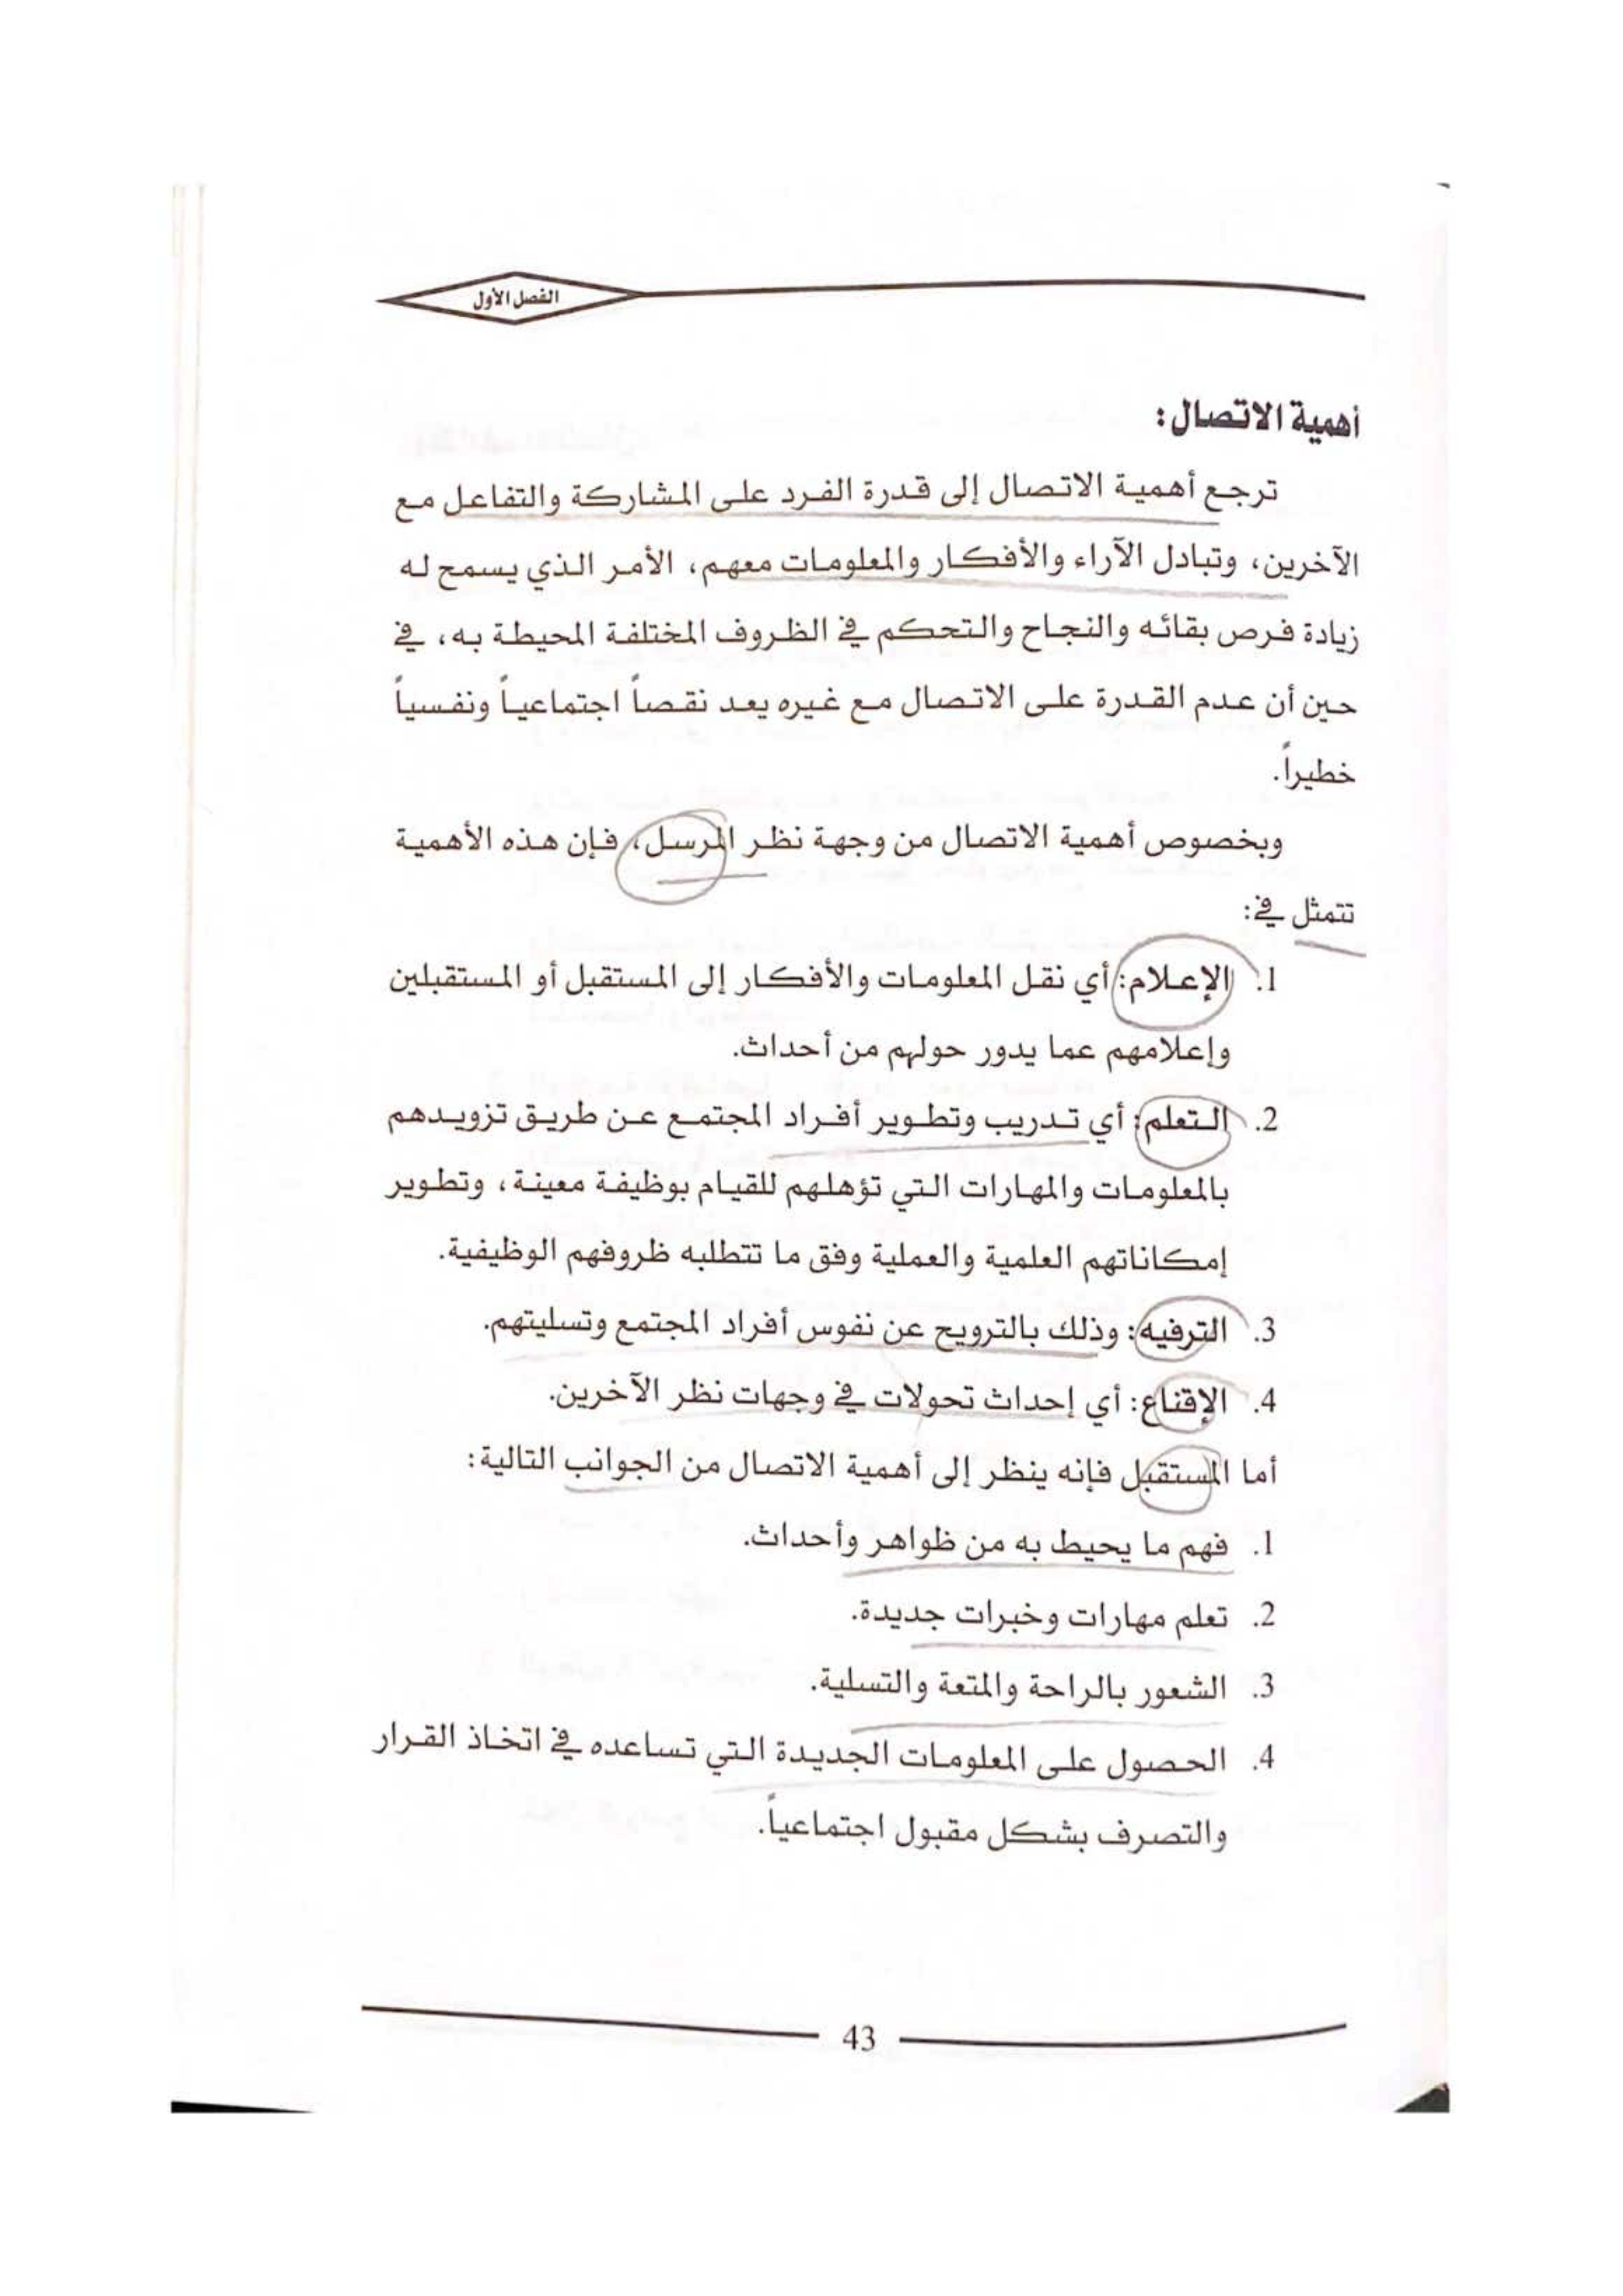 الفصل الأول
أهمية الاتصال:
ترجع أهمية الاتصال إلى قدرة الفرد على المشاركة والتفاعل مع
الآخرين، وتبادل الآراء والأفكار والمعلومات معهم، الأمر الذي يسمح له
زيادة فرص بقائه والنجاح والتحكم في الظروف المختلفة المحيطة به، في
حين أن عدم القدرة على الاتصال مع غيره يعد نقصاً اجتماعياً ونفسياً
خطيراً.
وبخصوص أهمية الاتصال من وجهة نظر المرسل، فإن هذه الأهمية
تتمثل في:
1. الإعلام: أي نقل المعلومات والأفكار إلى المستقبل أو المستقبلين
وإعلامهم عما يدور حولهم من أحداث.
2. التعلم: أي تدريب وتطوير أفراد المجتمع عن طريق تزويدهم
بالمعلومات والمهارات التي تؤهلهم للقيام بوظيفة معينة، وتطوير
إمكاناتهم العلمية والعملية وفق ما تتطلبه ظروفهم الوظيفية.
3. الترفيه: وذلك بالترويح عن نفوس أفراد المجتمع وتسليتهم.
4. الإقناع: أي إحداث تحولات في وجهات نظر الآخرين.
أما المستقبل فإنه ينظر إلى أهمية الاتصال من الجوانب التالية:
1. فهم ما يحيط به من ظواهر وأحداث.
2. تعلم مهارات وخبرات جديدة.
3. الشعور بالراحة والمتعة والتسلية.
4. الحصول على المعلومات الجديدة التي تساعده في اتخاذ القرار
والتصرف بشكل مقبول اجتماعياً.
43